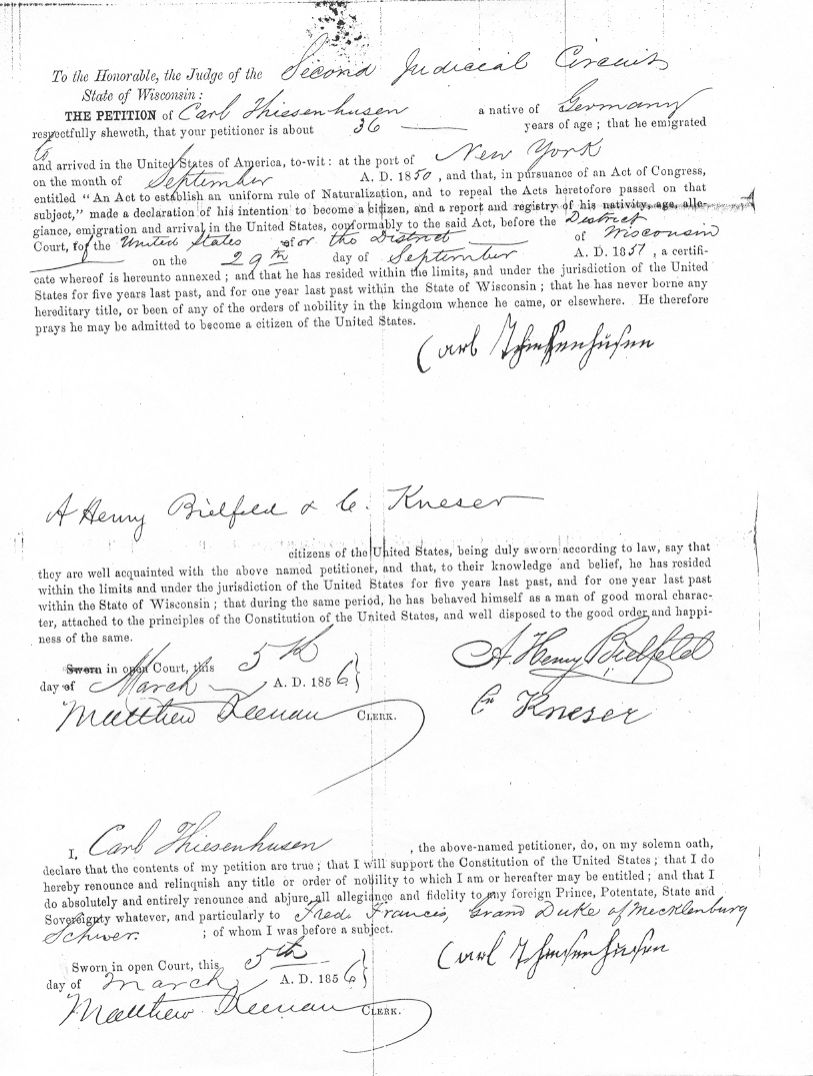 To the Honorable, the Judge of the Second Judicial Circuit
State of Wisconsin:
THE PETITION of Carl Thiessenhusen a native of Germany
respectfully sheweth, that your petitioner is about 36 years of age; that he emigrated
to
and arrived in the United States of America, to-wit: at the port of New York
on the month of September A. D. 1850, and that, in pursuance of an Act of Congress,
entitled "An Act to establish an uniform rule of Naturalization, and to repeal the Acts heretofore passed on that
subject," made a declaration of his intention to become a citizen, and a report and registry of his nativity, age, alle-
giance, emigration and arrival in the United States, conformably to the said Act, before the District
Court, for the United States for the District of Wisconsin
on the 29th day of September A. D. 1851, a certifi-
cate whereof is hereunto annexed; and that he has resided within the limits, and under the jurisdiction of the United
States for five years last past, and for one year last past within the State of Wisconsin; that he has never borne any
hereditary title, or been of any of the orders of nobility in the kingdom whence he came, or elsewhere. He therefore
prays he may be admitted to become a citizen of the United States.
Carl Thiessenhusen
A Henry Bielfeld & C. Kneser
citizens of the United States, being duly sworn according to law, say that
they are well acquainted with the above named petitioner, and that, to their knowledge and belief, he has resided
within the limits and under the jurisdiction of the United States for five years last past, and for one year last past
within the State of Wisconsin; that during the same period, he has behaved himself as a man of good moral charac-
ter, attached to the principles of the Constitution of the United States, and well disposed to the good order and happi-
ness of the same.
Sworn in open Court, this 5th
day of March A. D. 1856
A Henry Bielfeld
Matthew Keenan CLERK.
Kneser
I, Carl Thiesenhusen, the above-named petitioner, do, on my solemn oath,
declare that the contents of my petition are true; that I will support the Constitution of the United States; that I do
hereby renounce and relinquish any title or order of nobility to which I am or hereafter may be entitled; and that I
do absolutely and entirely renounce and abjure all allegiance and fidelity to any foreign Prince, Potentate, State and
Sovereignty whatever, and particularly to Fred. Francis, Grand Duke of Mecklenburg
Schwer. ; of whom I was before a subject.
Carl Thiessenhusen
Sworn in open Court, this 5th
day of March A. D. 1856
Matthew Keenan CLERK.